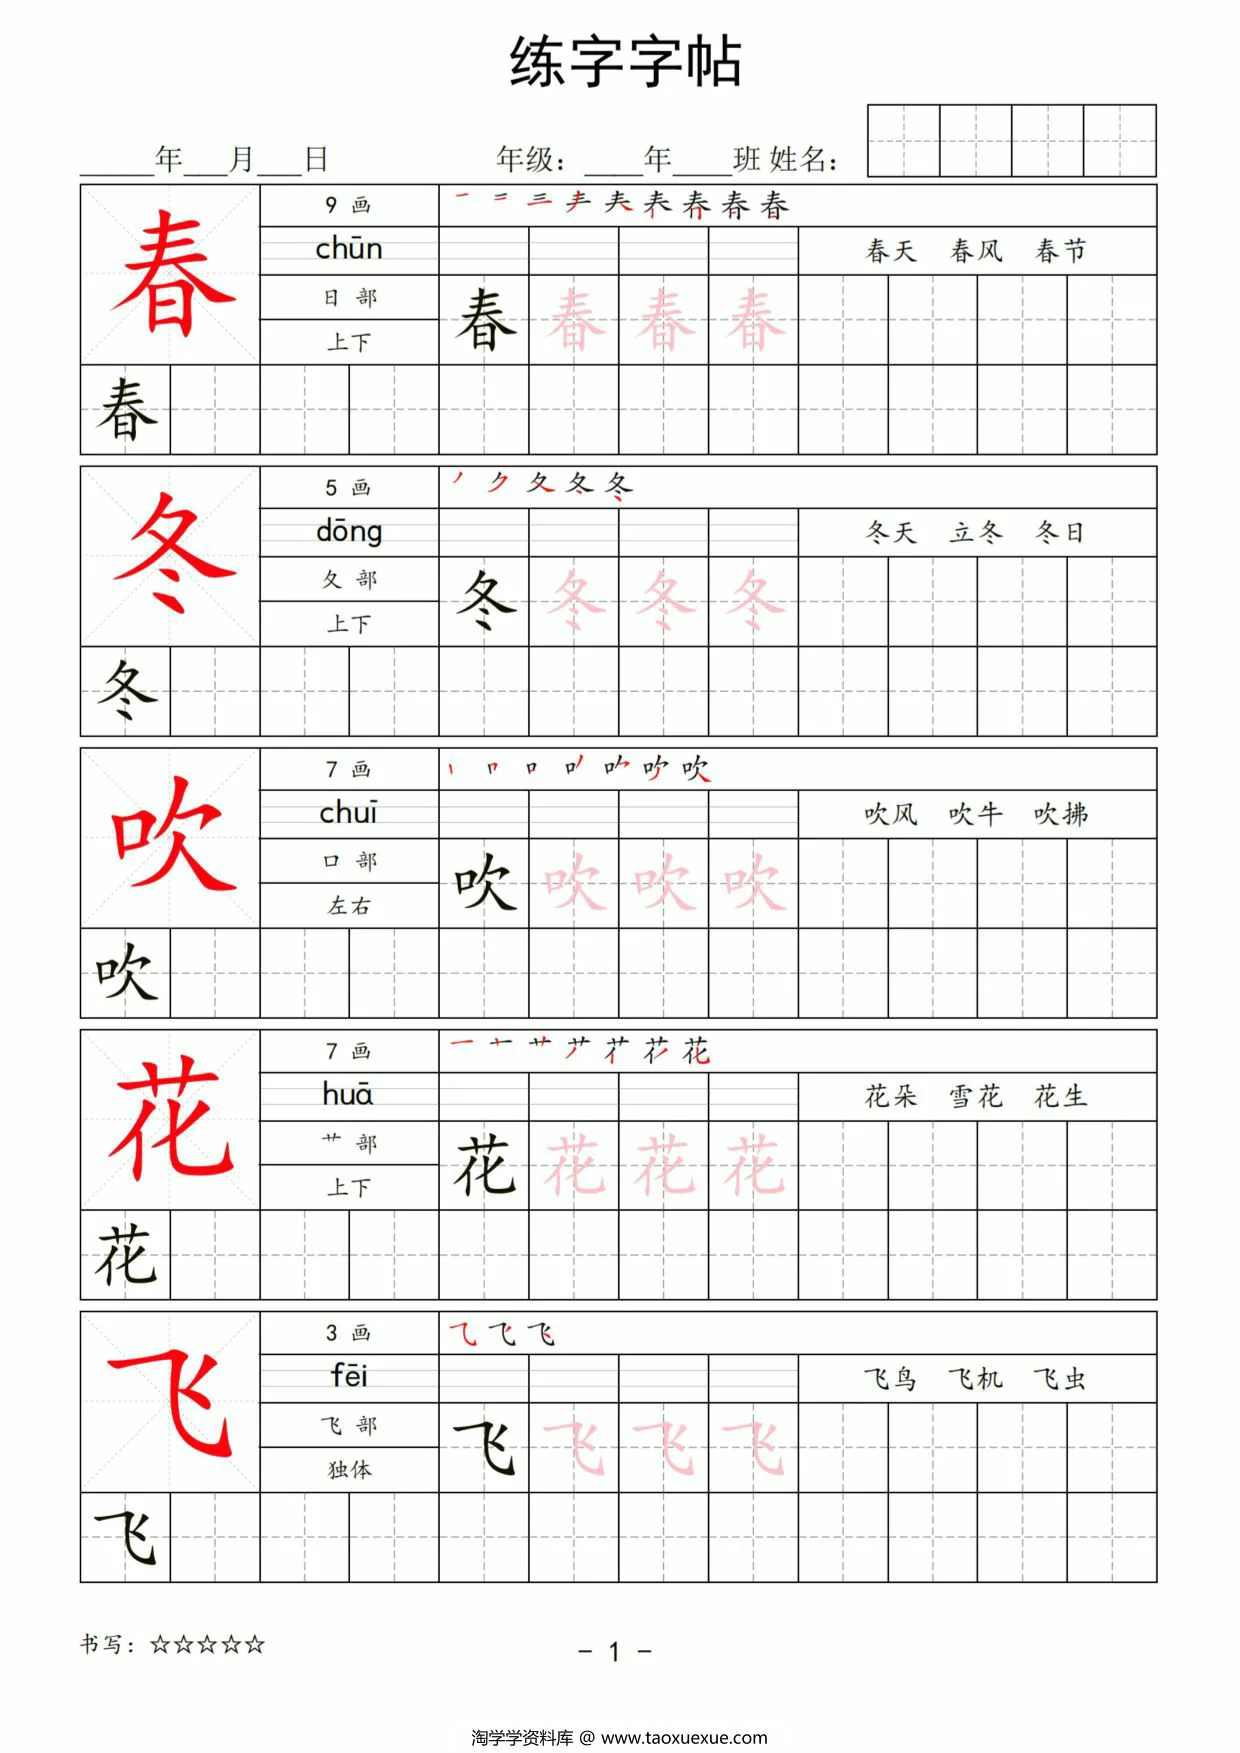 练字字帖
_____年___月___日 年级：____年____班 姓名：
春 9 画 一 二 三 𡗗 春
chūn 春天 春风 春节
日 部 春 春 春 春
上下
春
冬 5 画 丿 ク 夂 冬 冬
dōng 冬天 立冬 冬日
夂 部 冬 冬 冬 冬
上下
冬
吹 7 画 丨 口 吹
chuī 吹风 吹牛 吹拂
口 部 吹 吹 吹 吹
左右
吹
花 7 画 一 艹 花
huā 花朵 雪花 花生
艹 部 花 花 花 花
上下
花
飞 3 画 乁 飞 飞
fēi 飞鸟 飞机 飞虫
飞 部 飞 飞 飞 飞
独体
飞
书写：☆☆☆☆☆ - 1 -
淘学学资料库 @ www.taoxuexue.com